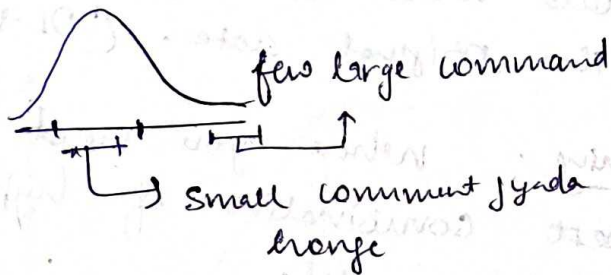 few large command
small comment jyada
honge